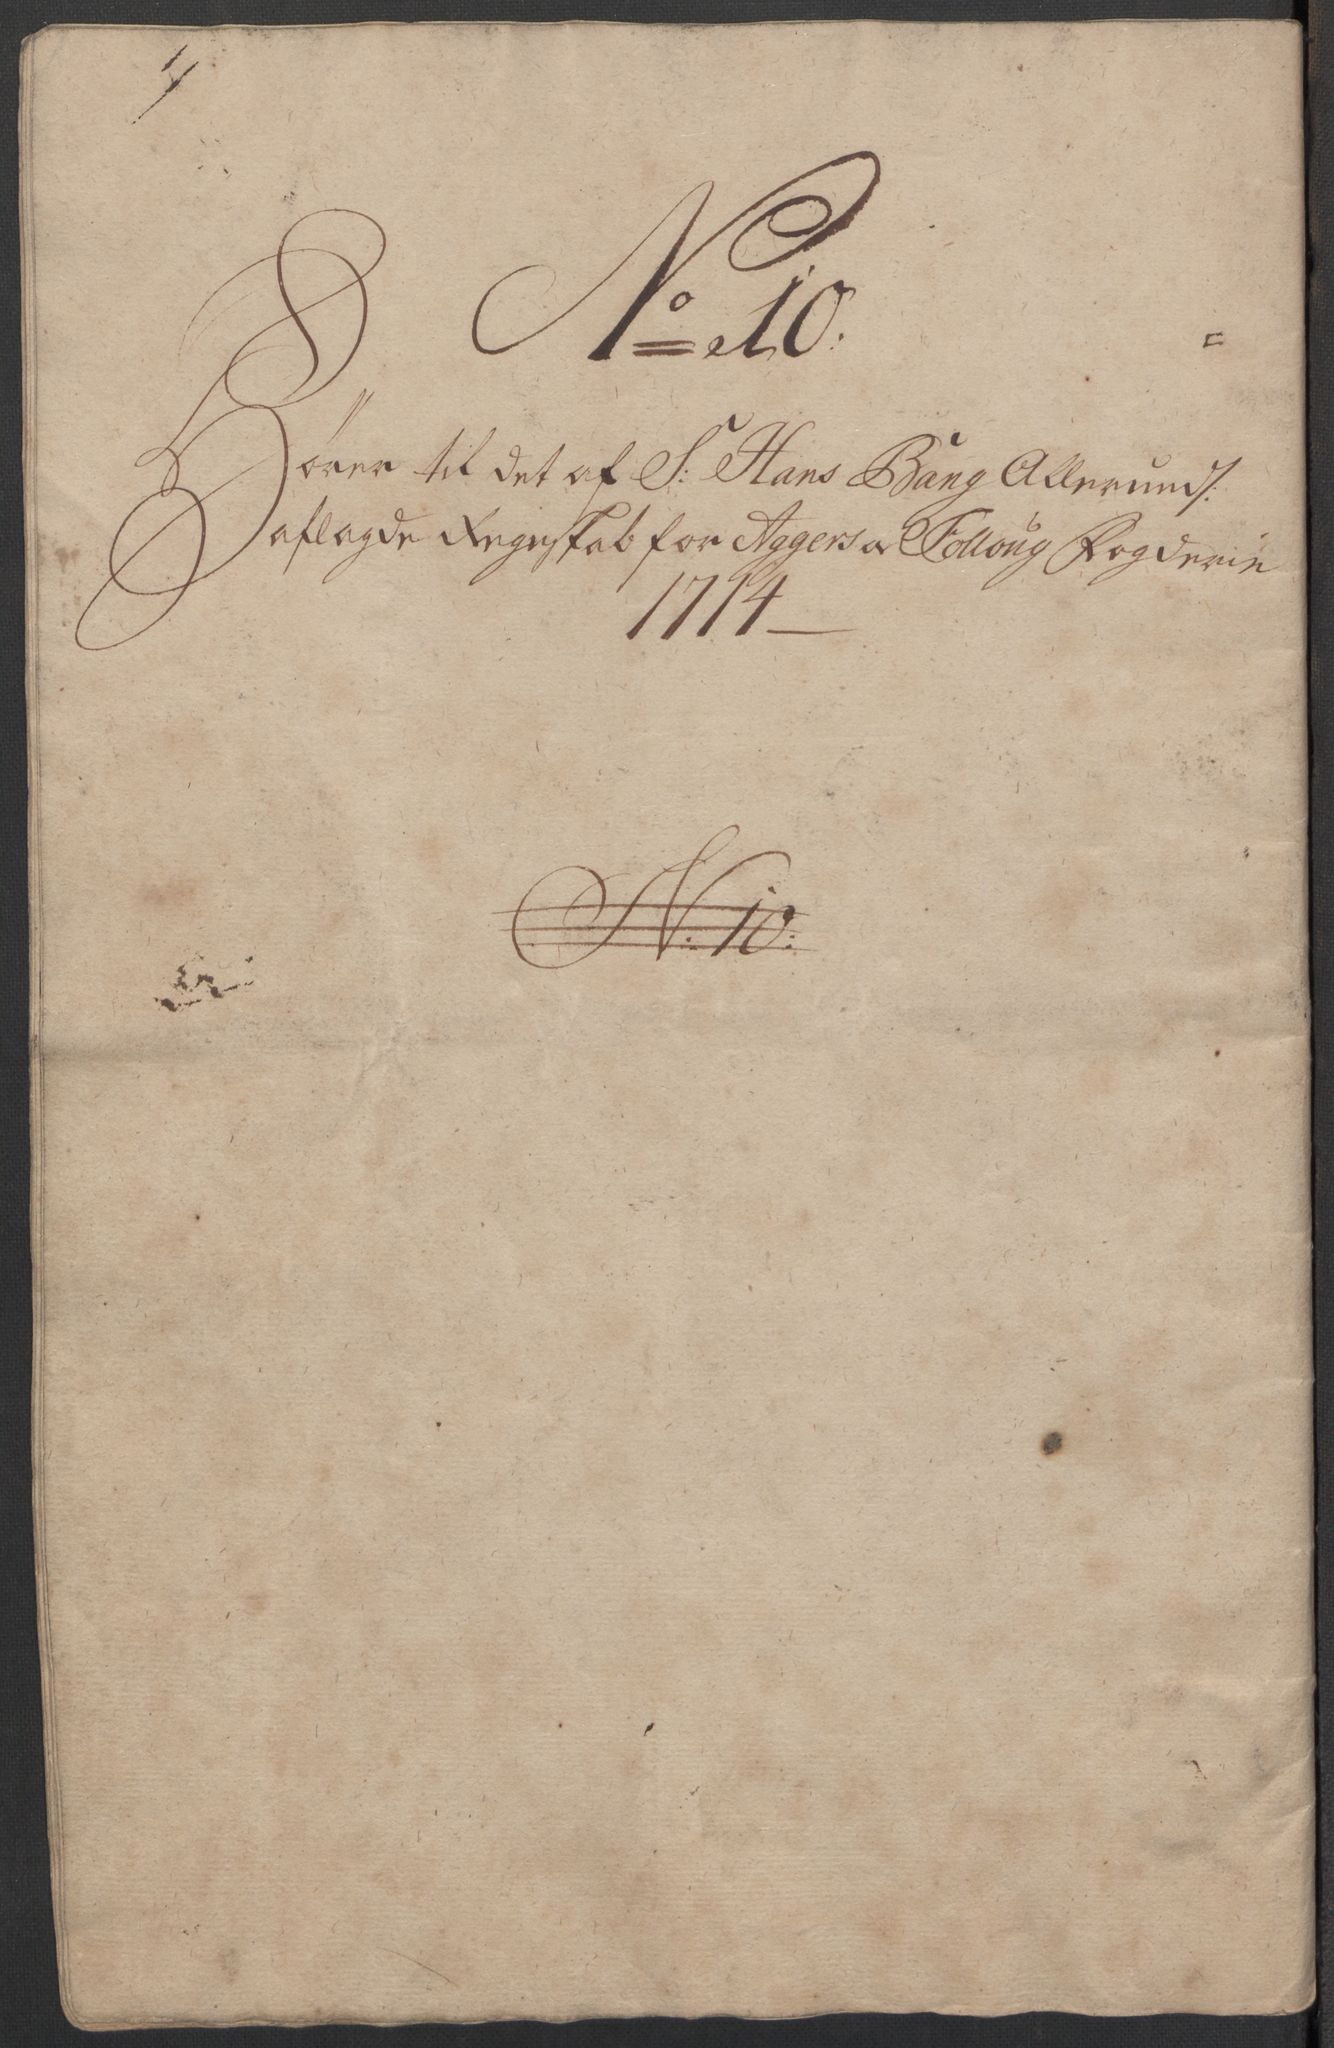 No 10.
Hörer til det af S: Hans Bang Allerunds:
aflagde Regenskab for Aggers oc Folloug Fogderie
1714
N: 10: